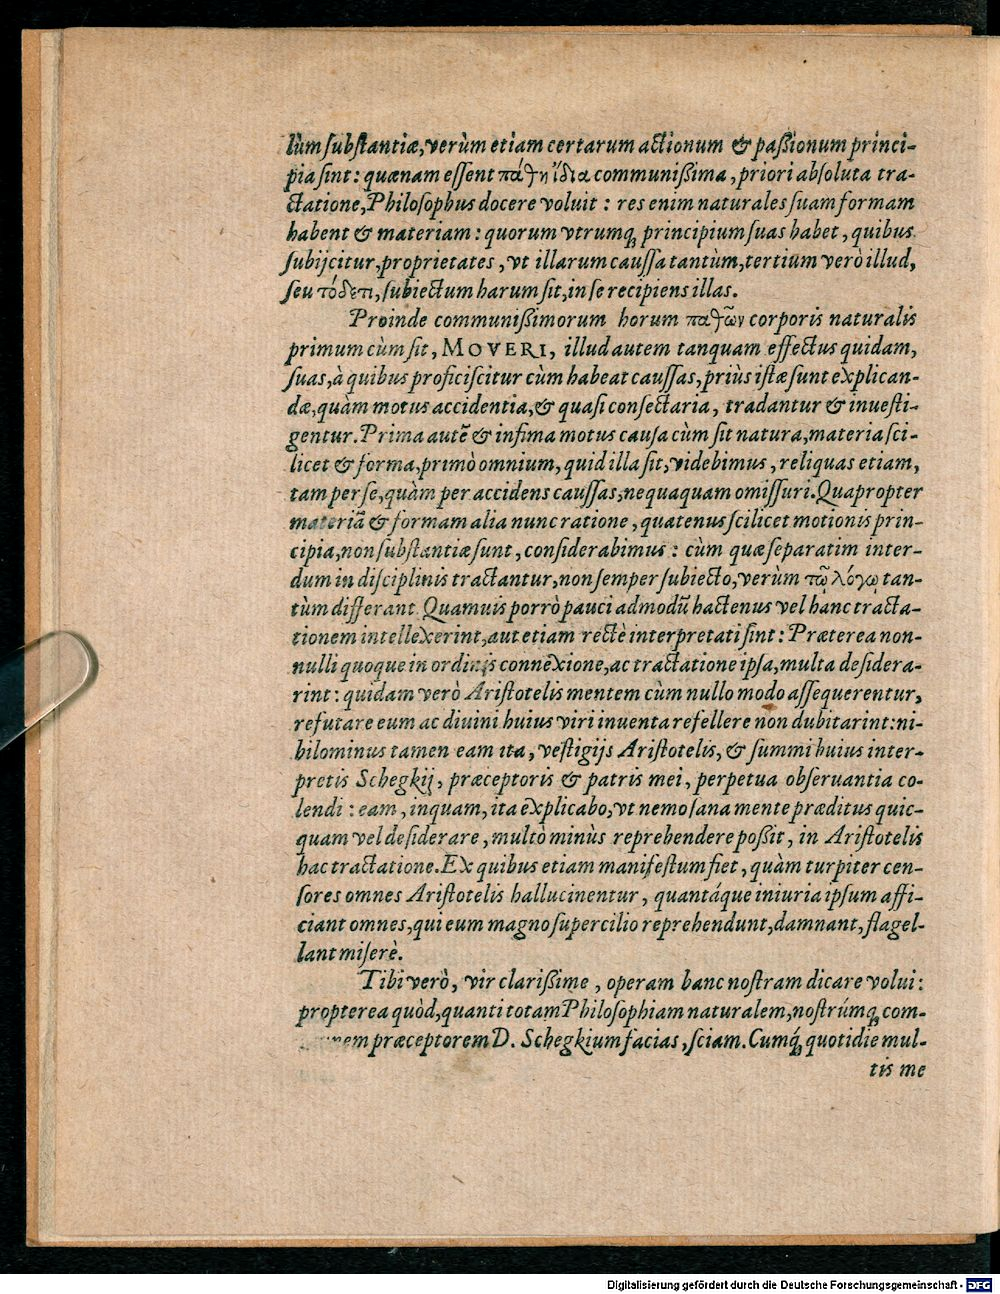 lùm substantiæ, verùm etiam certarum actionum & passionum princi-
pia sint: quænam essent πάθη ἴδια communissima, priori absoluta tra-
ctatione, Philosophus docere voluit: res enim naturales suam formam
habent & materiam: quorum vtrumq; principium suas habet, quibus
subijcitur, proprietates, vt illarum caussa tantùm, tertium verò illud,
seu τόδετι, subiectum harum sit, in se recipiens illas.
Proinde communissimorum horum παθῶν corporis naturalis
primum cùm sit, MOVERI, illud autem tanquam effectus quidam,
suas, à quibus proficiscitur cùm habeat caussas, priùs istæ sunt explican-
dæ, quàm motus accidentia, & quasi consectaria, tradantur & inuesti-
gentur. Prima autẽ & infima motus causa cùm sit natura, materia sci-
licet & forma, primò omnium, quid illa sit, videbimus, reliquas etiam,
tam per se, quàm per accidens caussas, nequaquam omissuri. Quapropter
materiã & formam alia nunc ratione, quatenus scilicet motionis prin-
cipia, non substantiæ sunt, considerabimus: cùm quæ separatim inter-
dum in disciplinis tractantur, non semper subiecto, verùm τῷ λόγῳ tan-
tùm differant. Quamuis porrò pauci admodũ hactenus vel hanc tracta-
tionem intellexerint, aut etiam rectè interpretati sint: Præterea non-
nulli quoque in ordinis connexione, ac tractatione ipsa, multa desidera-
rint: quidam verò Aristotelis mentem cùm nullo modo assequerentur,
refutare eum ac diuini huius viri inuenta refellere non dubitarint: ni-
hilominus tamen eam ita, vestigijs Aristotelis, & summi huius inter-
pretis Schegkij, præceptoris & patris mei, perpetua obseruantia co-
lendi: eam, inquam, ita explicabo, vt nemo sana mente præditus quic-
quam vel desiderare, multò minùs reprehendere possit, in Aristotelis
hac tractatione. Ex quibus etiam manifestum fiet, quàm turpiter cen-
sores omnes Aristotelis hallucinentur, quantáque iniuria ipsum affi-
ciant omnes, qui eum magno supercilio reprehendunt, damnant, flagel-
lant miserè.
Tibi verò, vir clarissime, operam hanc nostram dicare volui:
propterea quòd, quanti totam Philosophiam naturalem, nostrúmq; com-
præceptorem D. Schegkium facias, sciam. Cumq́; quotidie mul-
tis me
Digitalisierung gefördert durch die Deutsche Forschungsgemeinschaft - DFG